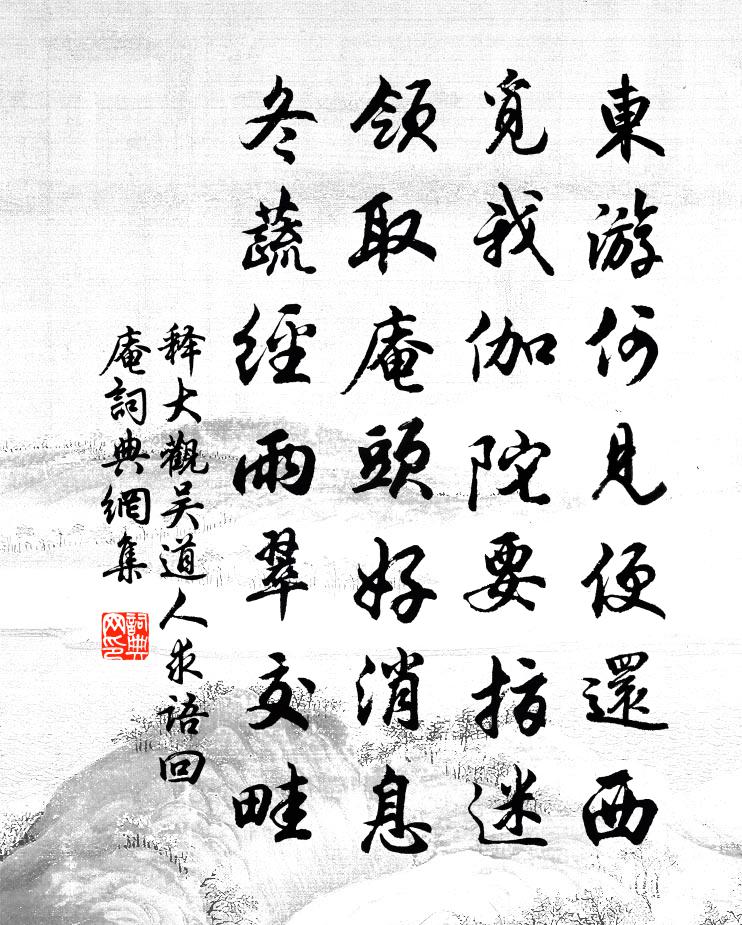 東游何見便還西
覓我伽陀要指迷
領取庵頭好消息
冬蔬經雨翠交畦
释大觀吴道人求語回
庵詞典網集
詞典网印